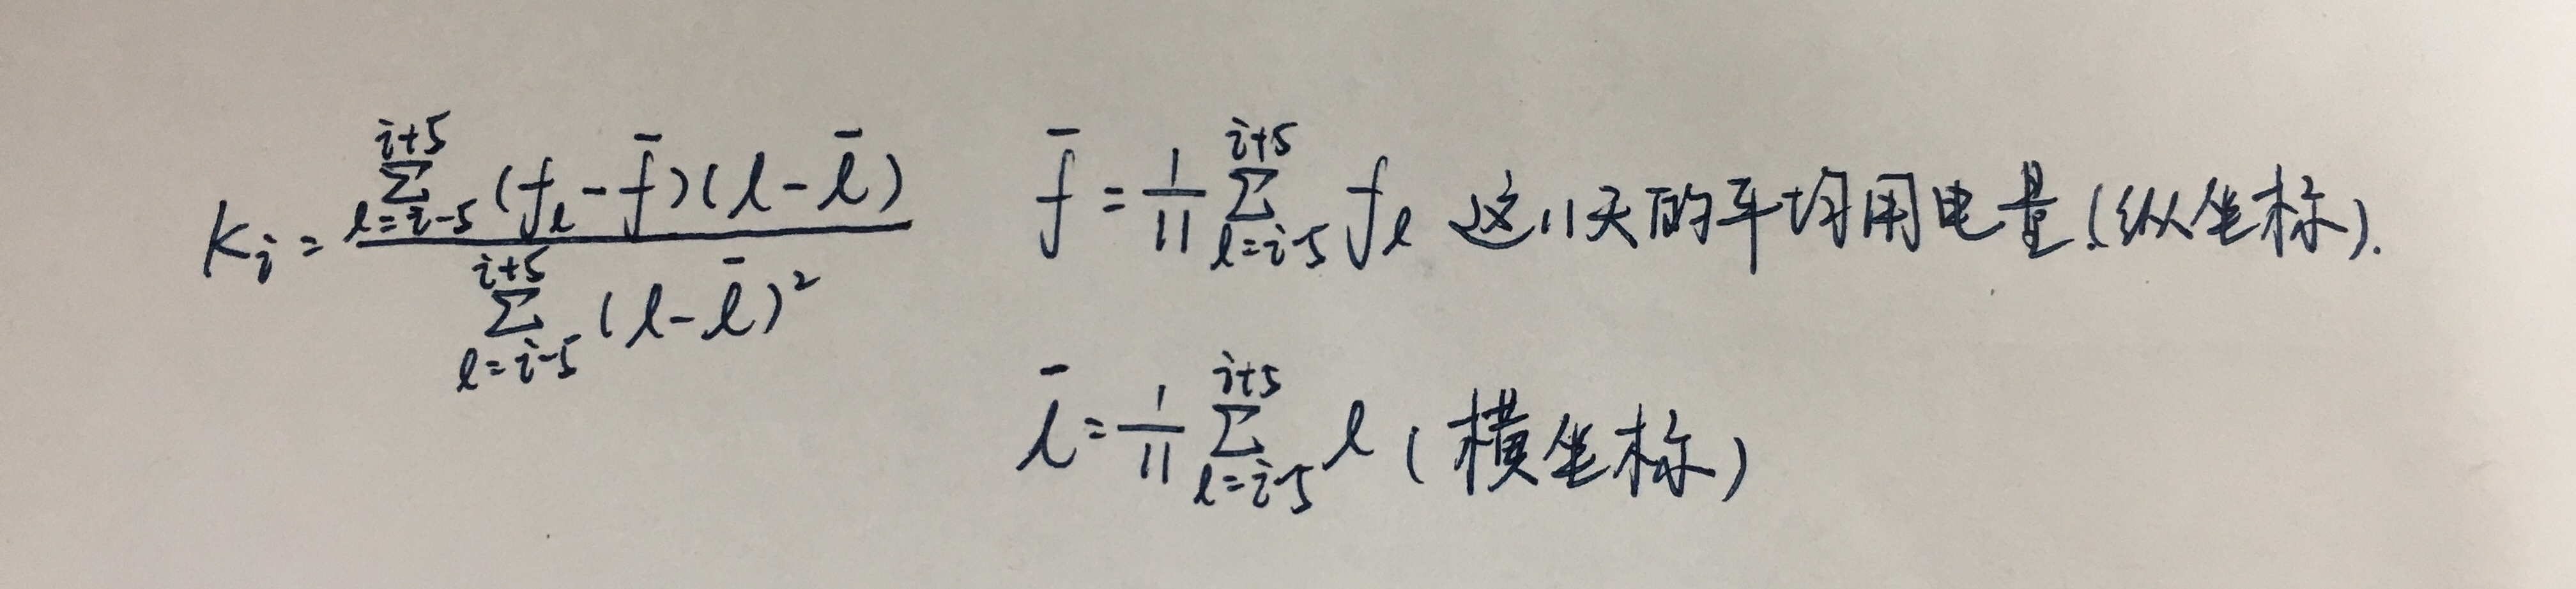 K_i = \frac{\sum_{l=i-5}^{i+5} (f_l - \bar{f})(l - \bar{l})}{\sum_{l=i-5}^{i+5} (l - \bar{l})^2}
\bar{f} = \frac{1}{11} \sum_{l=i-5}^{i+5} f_l 这11天的平均用电量(纵坐标).
\bar{l} = \frac{1}{11} \sum_{l=i-5}^{i+5} l (横坐标)